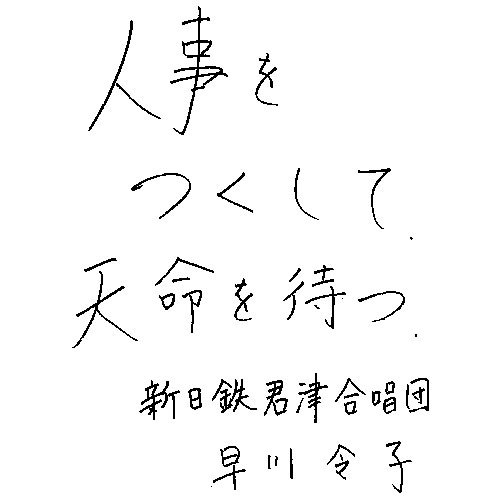 人事を
つくして.
天命を待つ.
新日鉄君津合唱団
早川令子